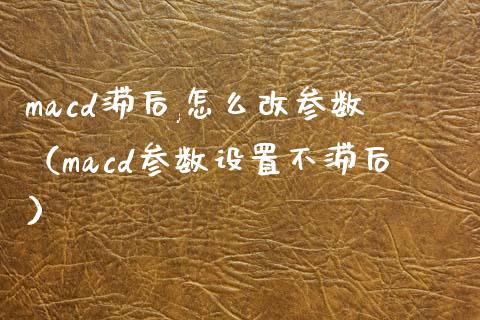 macd滞后,怎么改参数
（macd参数设置不滞后
）